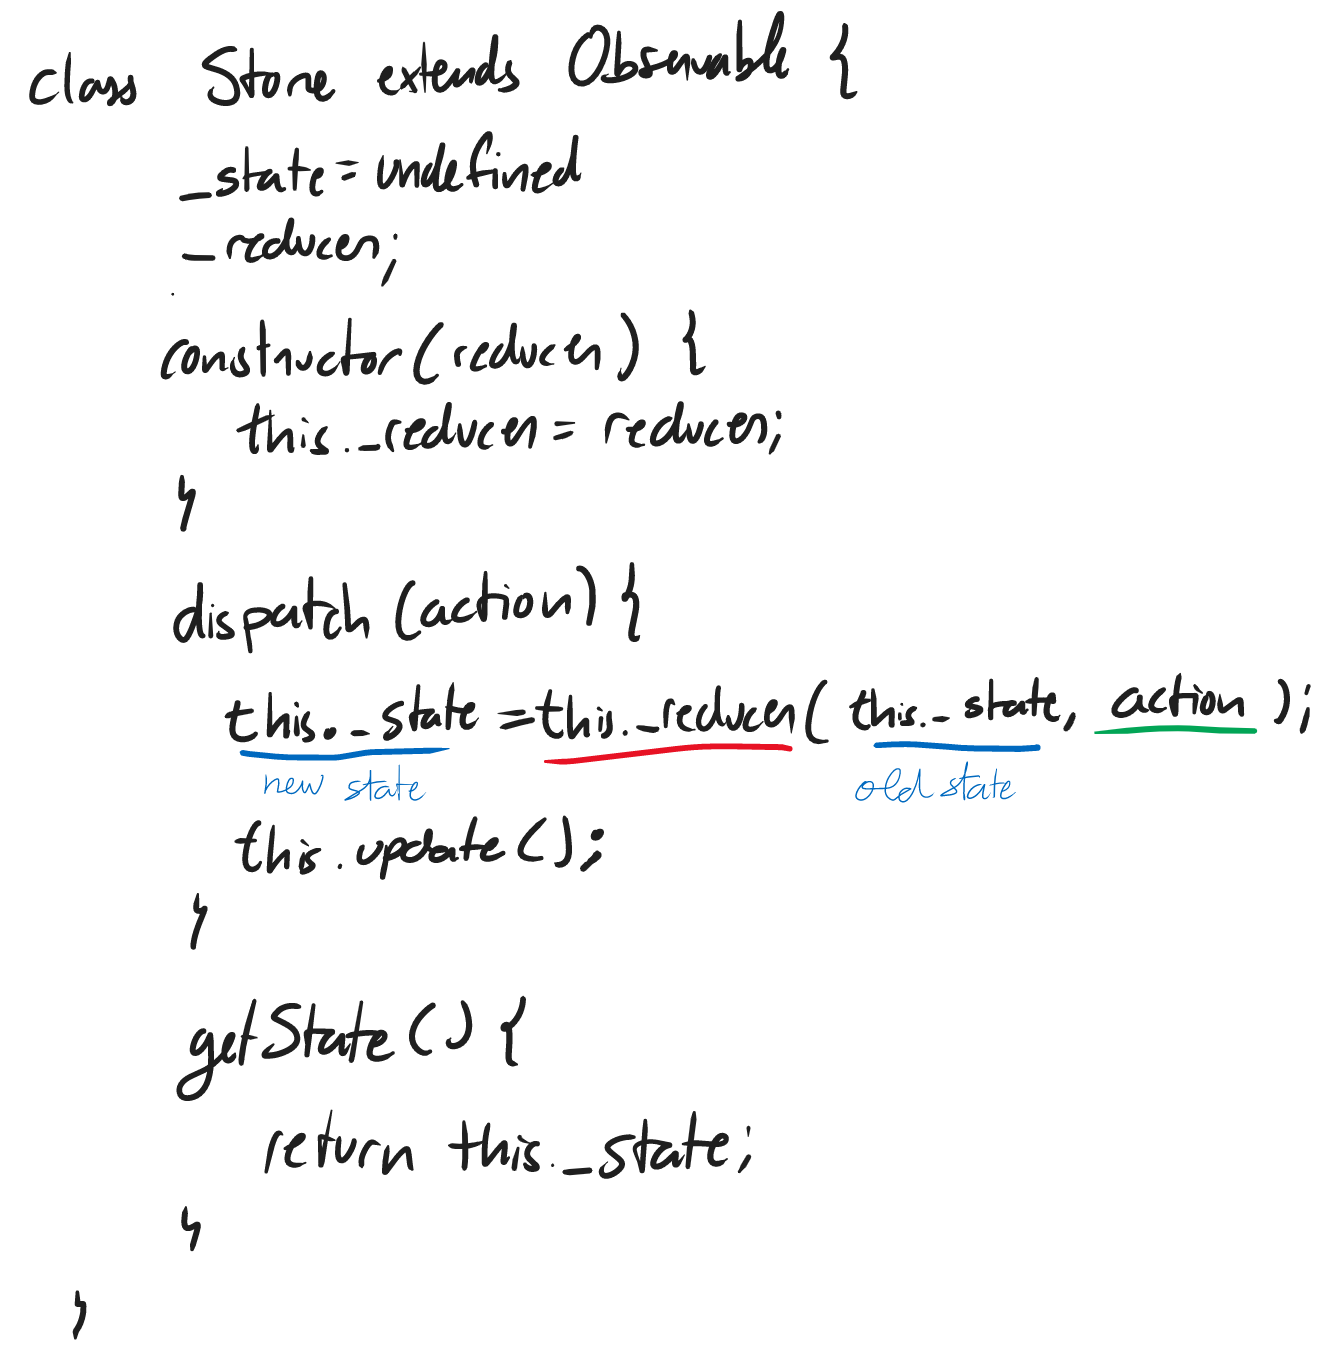 class Store extends Observable {
_state = undefined
_reducer;
constructor(reducer) {
this._reducer = reducer;
}
dispatch (action) {
this._state = this._reducer( this._state, action );
new state old state
this.update();
}
getState() {
return this._state;
}
}